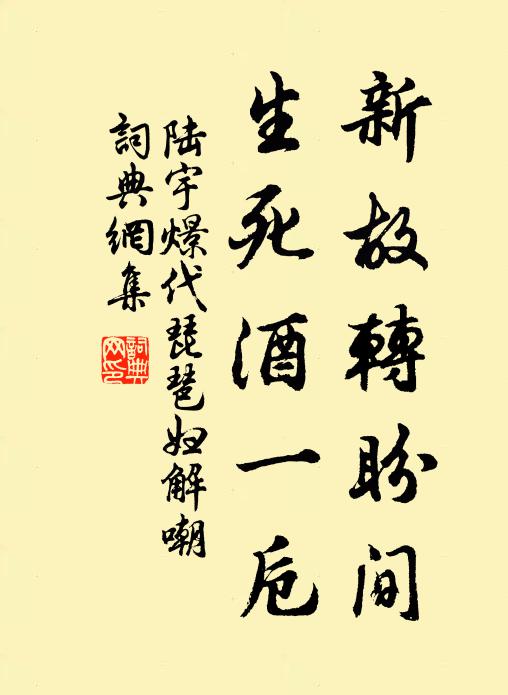 新故轉盼間
生死酒一卮
陆宇燝代琵琶妇解嘲
詞典網集
詞典
网印